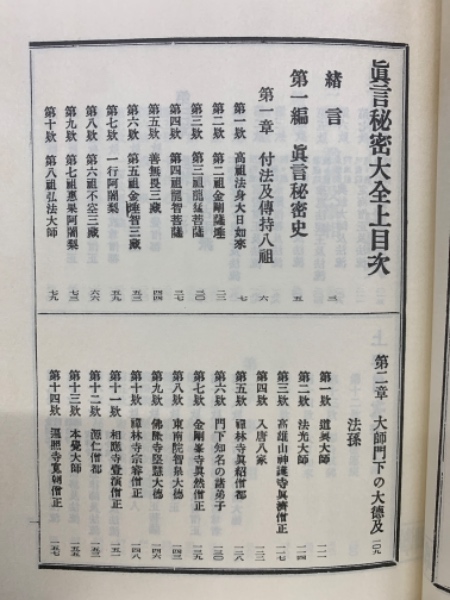 眞言秘密大全上目次
緒言 三
第一編 眞言秘密史 五
第一章 付法及傳持八祖 六
第一欵 高祖法身大日如來 七
第二欵 第二祖金剛薩埵
第三欵 第三祖龍猛菩薩 二〇
第四欵 第四祖龍智菩薩 三七
第五欵 善無畏三藏 四四
第六欵 第五祖金剛智三藏 五三
第七欵 一行阿闍梨 五九
第八欵 第六祖不空三藏 六六
第九欵 第七祖惠果阿闍梨 七三
第十欵 第八祖弘法大師 七九
第二章 大師門下の大德及 一〇九
法孫
第一欵 道興大師 一一一
第二欵 法光大師 一一四
第三欵 高雄山神護寺眞濟僧正 一二一
第四欵 入唐八家
第五欵 禪林寺眞紹僧都 一二八
第六欵 門下知名の諸弟子 一三〇
第七欵 金剛峯寺眞然僧正 一三九
第八欵 東南院智泉大德 一四三
第九欵 佛隆寺堅慧大德 一四六
第十欵 禪林寺宗睿僧正 一四八
第十一欵 相應寺壹演僧正 一五一
第十二欵 源仁僧都 一五二
第十三欵 本覺大師 一五五
第十四欵 遍照寺寬朝僧正 一五七